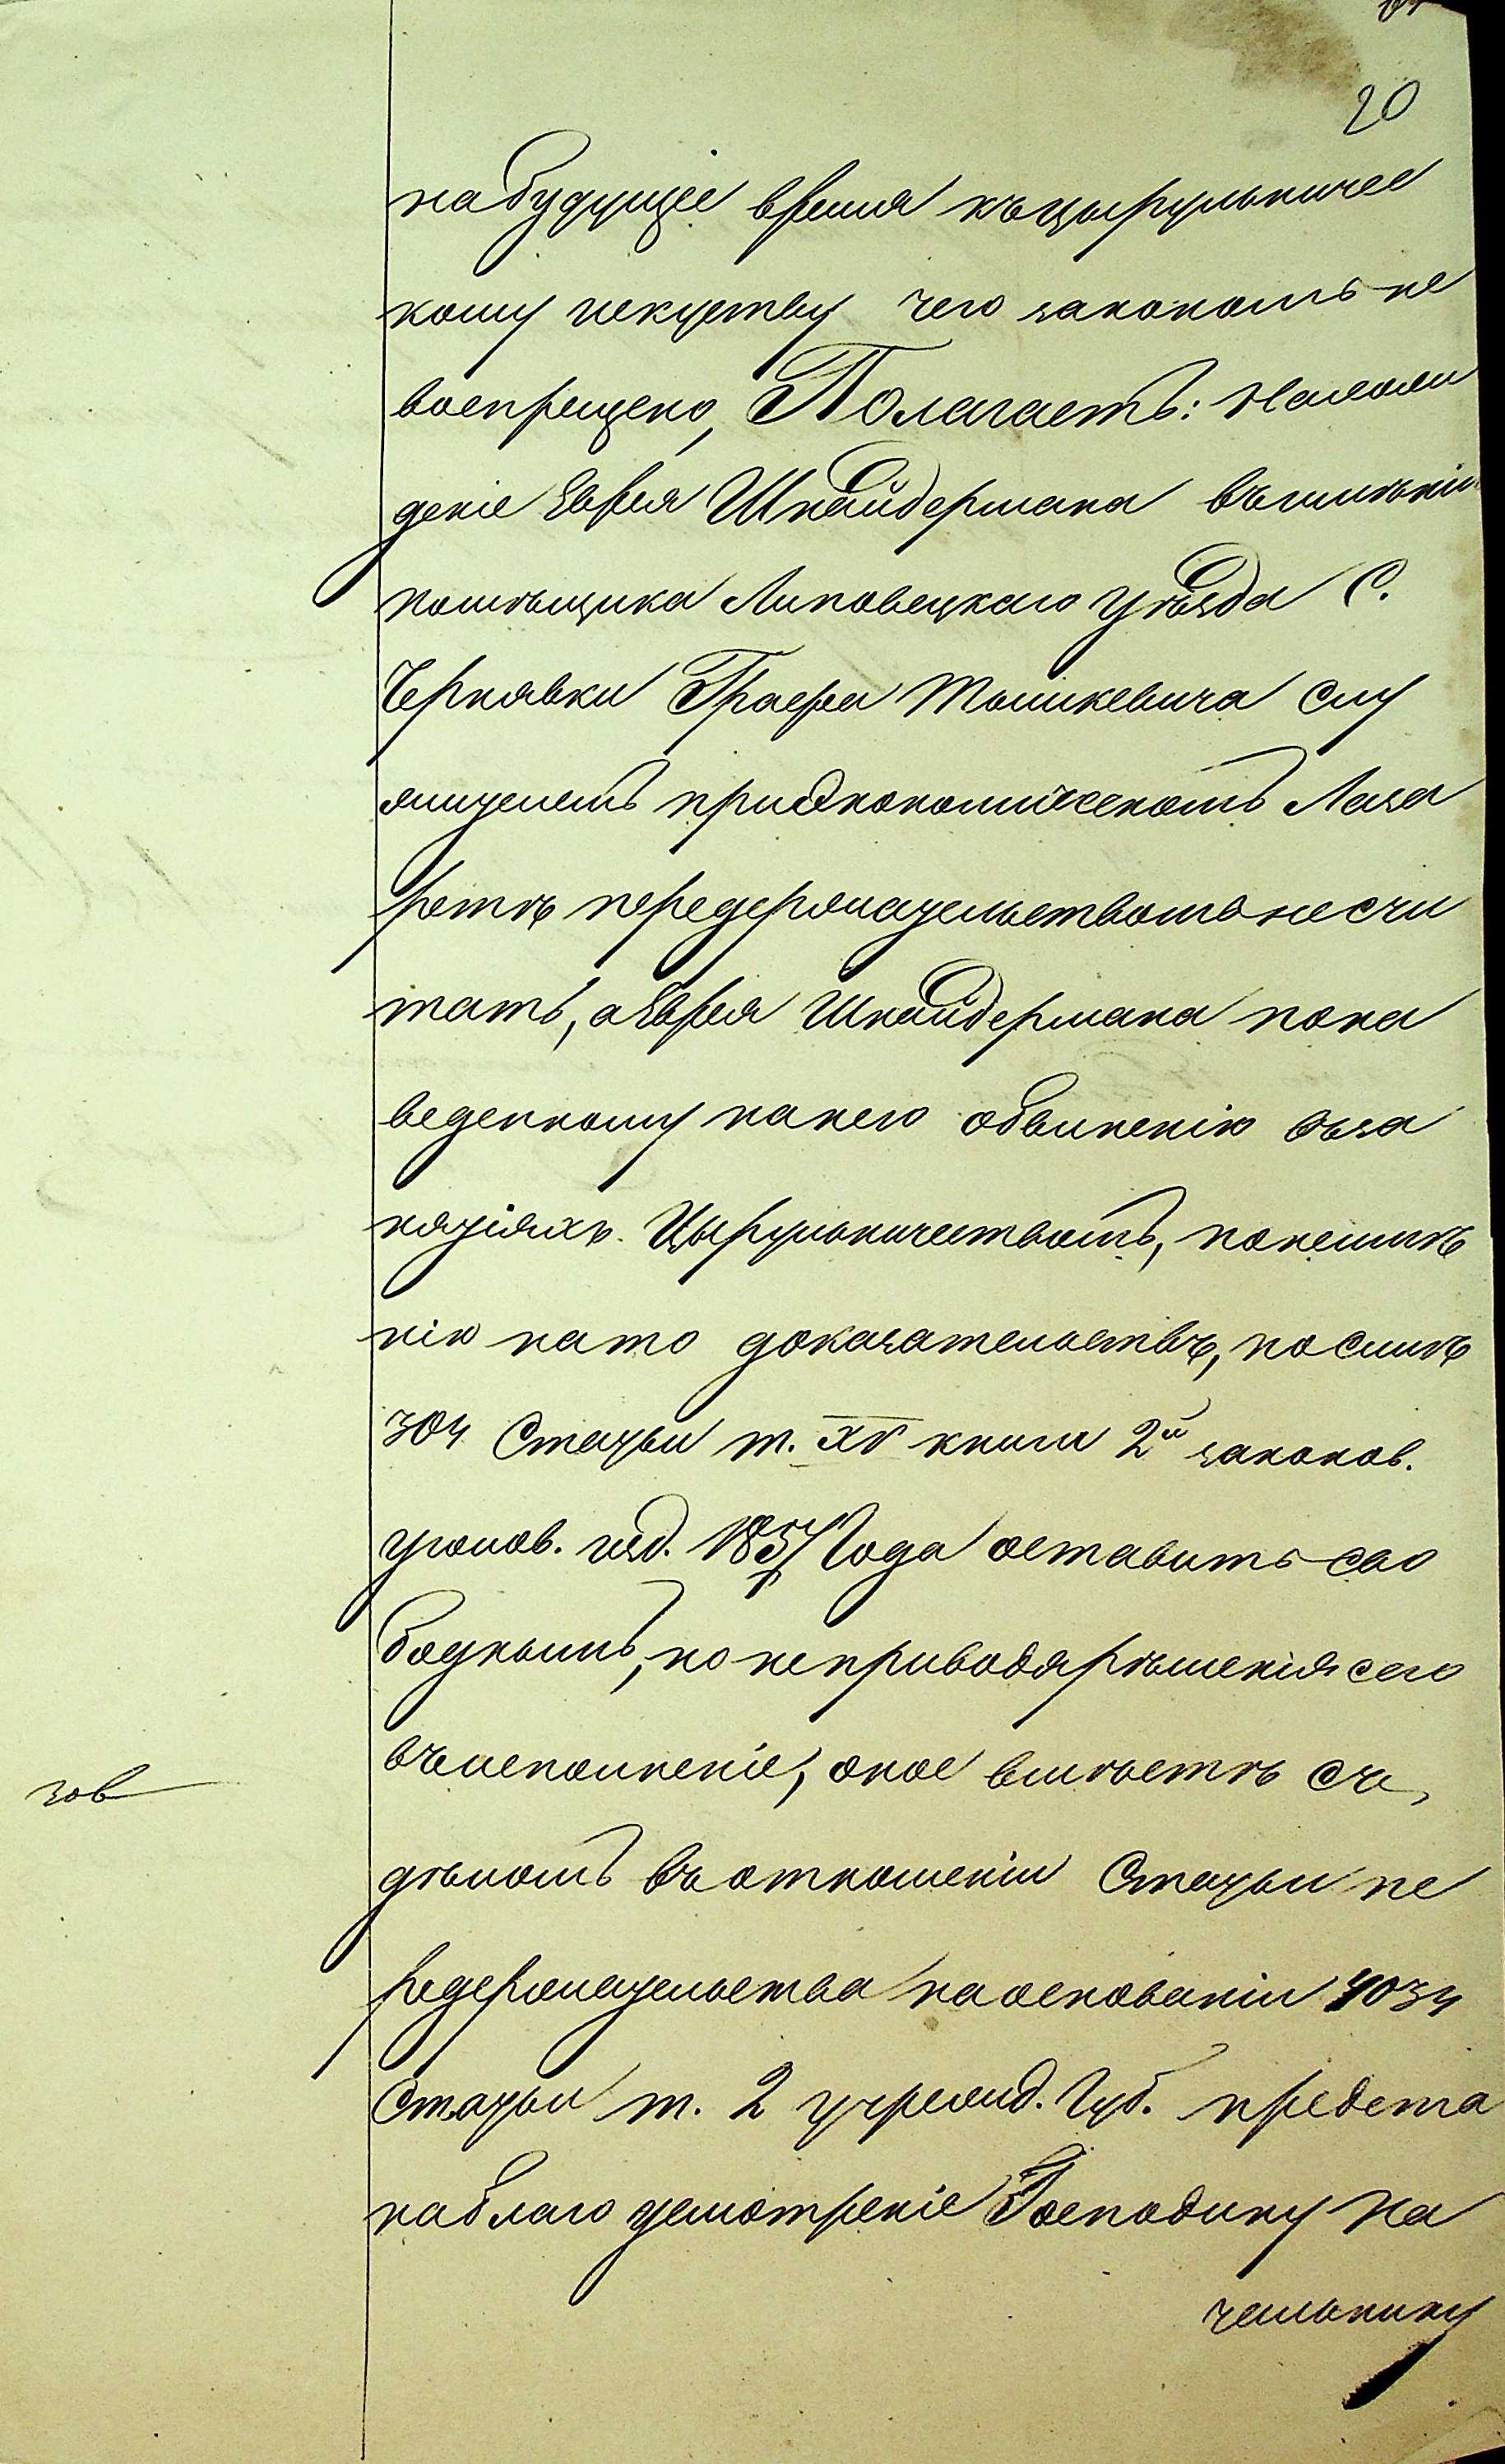 20
на будущее время къ цырульничес
кому искуству чего закономъ не
воспрещено, Полагаетъ: Нахож
деніе Еврея Шнайдермана въ имѣніи
помѣщика Липовецкаго уѣзда С.
Чернявки Графа Тышкевича слу
жителемъ при Экономическомъ Лаза
ретѣ передержательствомъ не счи
тать, а Еврея Шнайдермана по на
веденному на него обвиненію въ за
нятіяхъ Цырульничествомъ, по неимѣ
нію на то доказательствъ, по силѣ
304 Статьи т. XV книги 2й законов.
уголов. изд. 1857 Года оставить сво
боднымъ, но не приводя рѣшенія сего
въ исполненіе, оное вмѣстѣ съ
дѣломъ въ отношеніи Статьи пе
редержательства на основаніи 4034
Статьи т. 2 учрежд. Губ. предста
на благоусмотреніе Господину На
чальнику